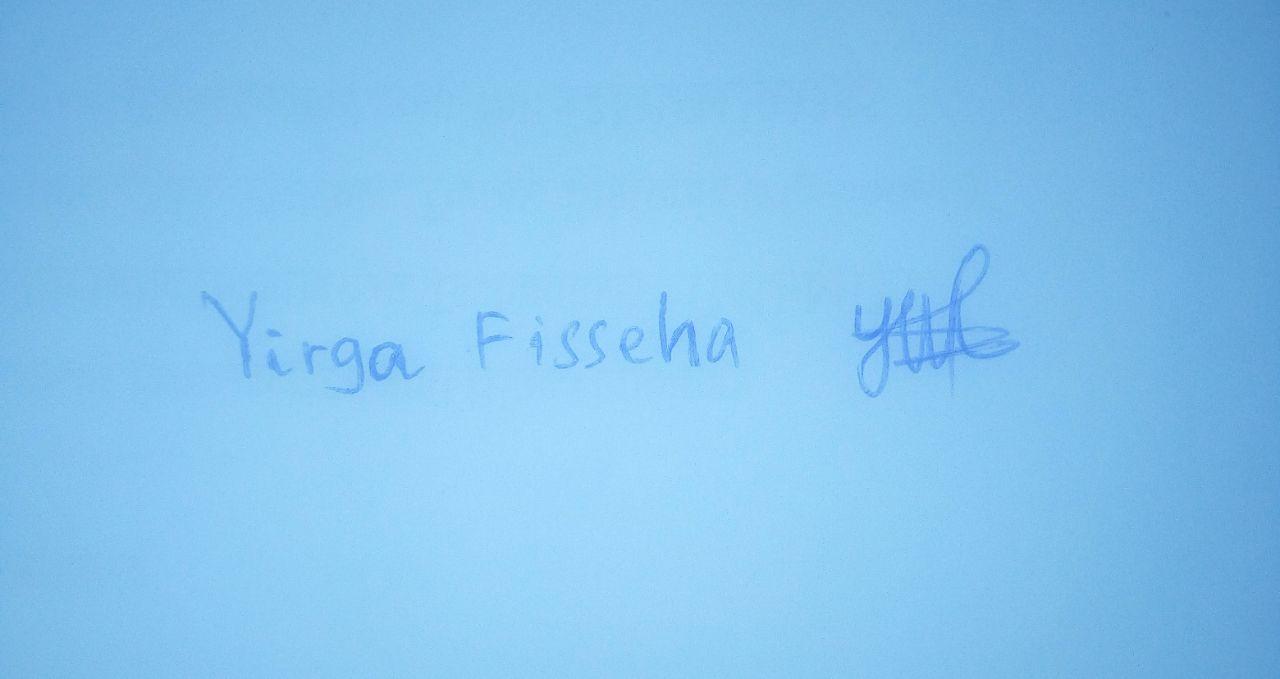 Yirga Fisseha